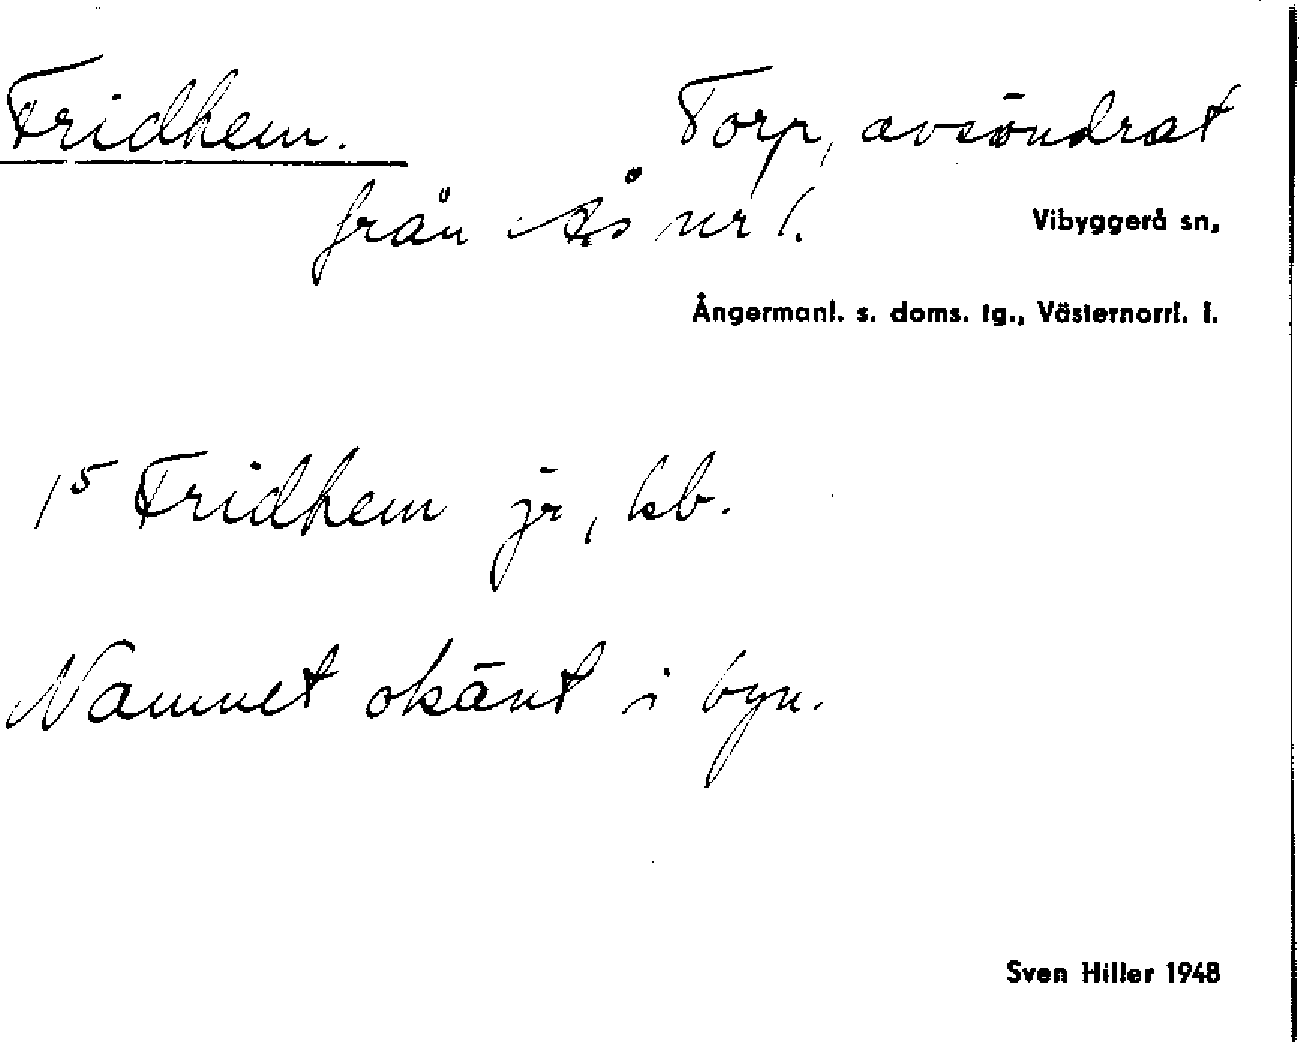 Fridhem. Torp, avsöndrat
från Ås nr 1.
Vibyggerå sn,
Ångermanl. s. doms. tg., Västernorrl. l.
1⁵ Fridhem jr, kb.
Namnet okänt i byn.
Sven Hiller 1948